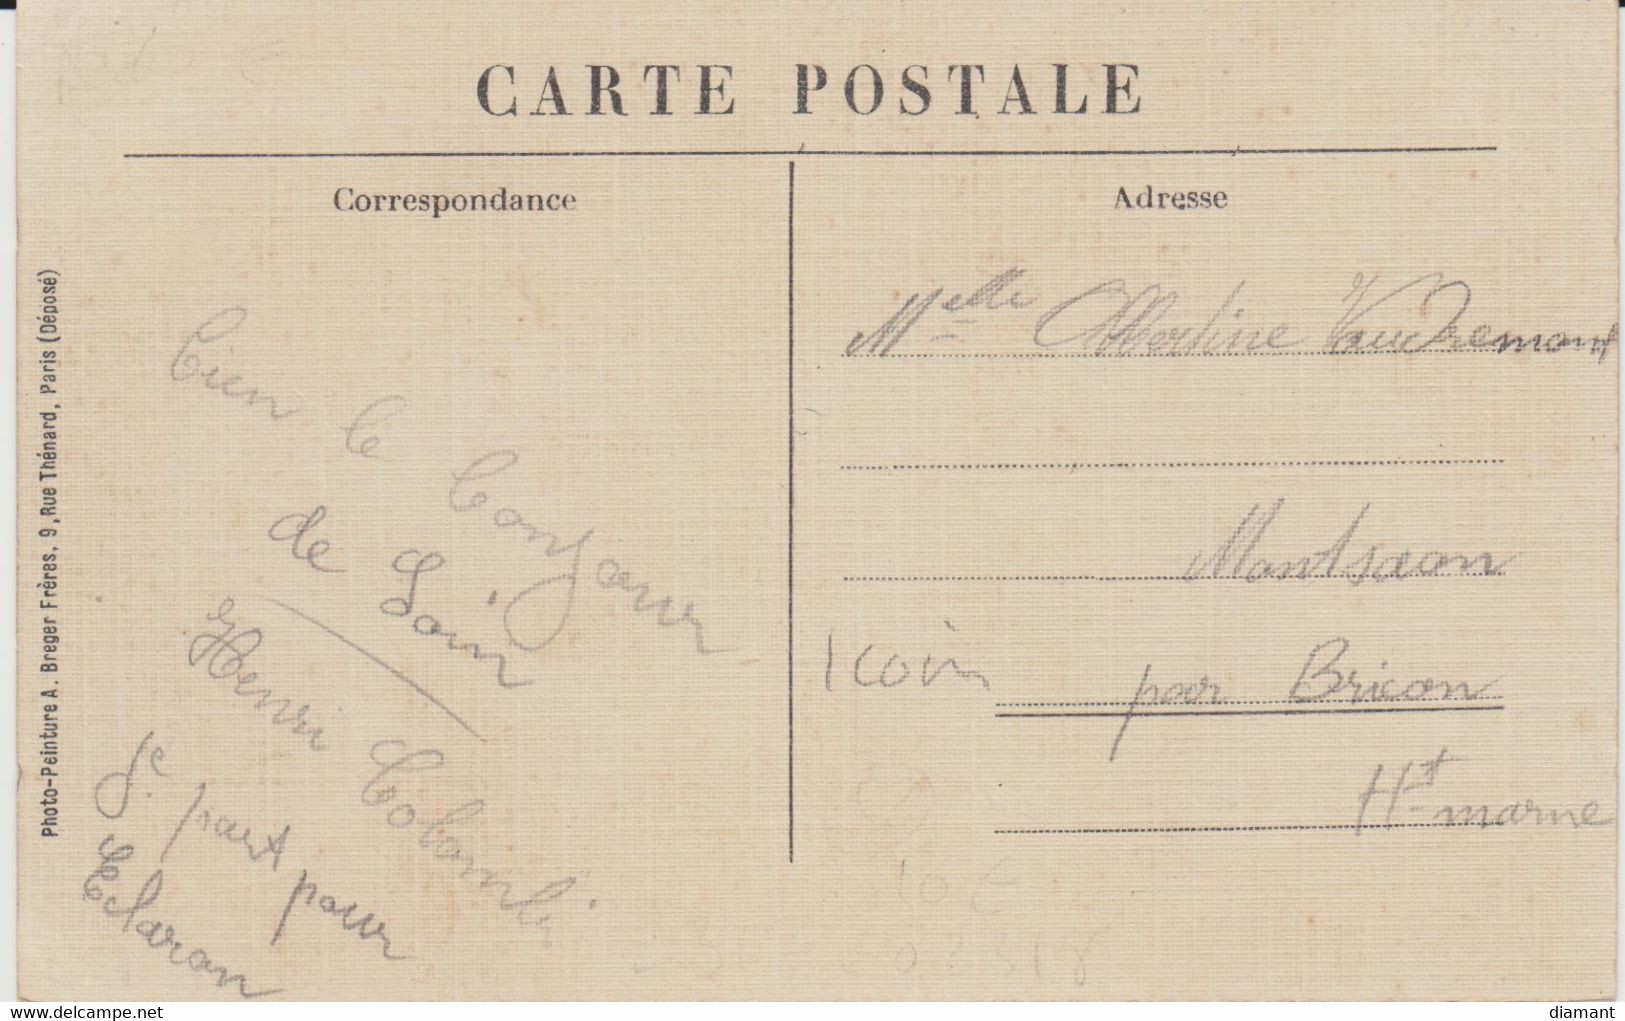 CARTE POSTALE
Correspondance
Adresse
Photo-Peinture A. Breger Frères, 9, Rue Thénard, Paris (Déposé)
bien le bonjour
de Loin
Henri Colombi
Je part pour
Eclaron
Melle Albertine Vaudremont
Montsaon
par Bricon
Ht marne
1 coin
10 €
www.delcampe.net
diamant